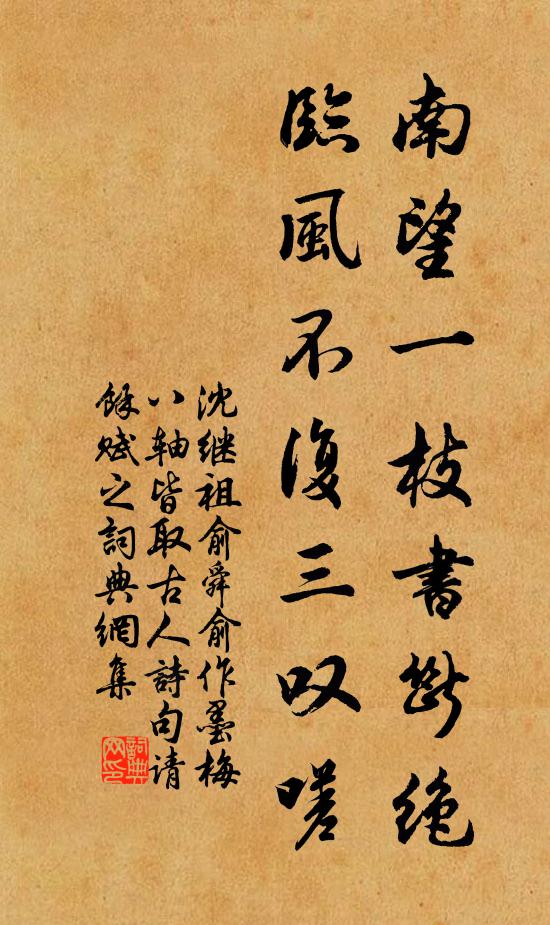 南望一枝書斷绝
臨風不復三叹嗟
沈继祖俞舜俞作墨梅
八轴皆取古人詩句请
餘赋之詞典網集
詞典網印